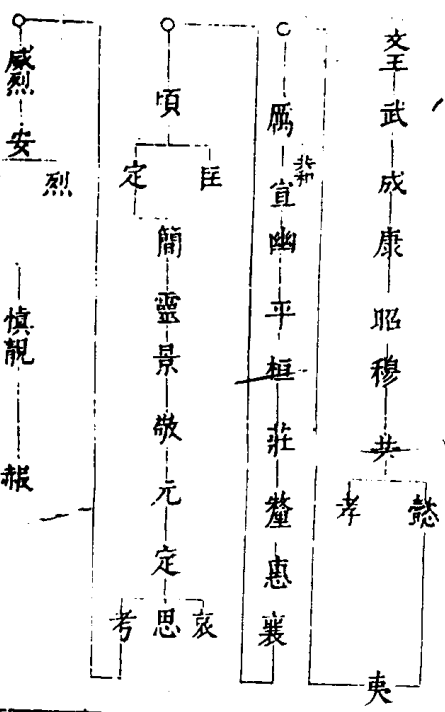 文王 武 成 康 昭 穆 共
懿
孝
夷
厲 共和 宣 幽 平 桓 莊 釐 惠 襄
頃
匡
定
簡 靈 景 敬 元 定
哀
思
考
威烈 安
烈
慎靚 赧